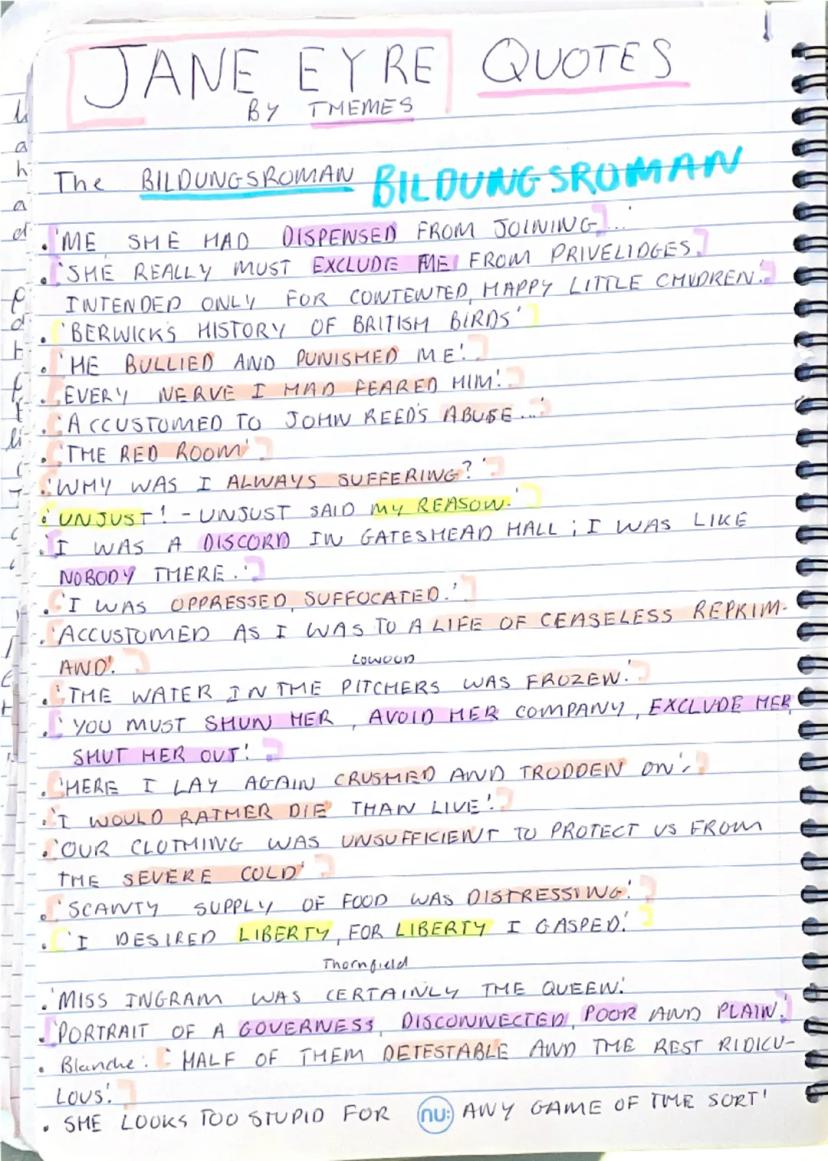 JANE EYRE QUOTES
BY THEMES
The BILDUNGSROMAN BILDUNGSROMAN
• 'ME SHE HAD DISPENSED FROM JOINING...'
• 'SHE REALLY MUST EXCLUDE ME FROM PRIVELIDGES
INTENDED ONLY FOR CONTENTED, HAPPY LITTLE CHILDREN.'
• 'BERWICK'S HISTORY OF BRITISH BIRDS'
• 'HE BULLIED AND PUNISHED ME.'
• 'EVERY NERVE I HAD FEARED HIM.'
• 'ACCUSTOMED TO JOHN REED'S ABUSE...'
• 'THE RED ROOM'
• 'WHY WAS I ALWAYS SUFFERING?'
• 'UNJUST! - UNJUST SAID MY REASON.'
• 'I WAS A DISCORD IN GATESHEAD HALL; I WAS LIKE
NOBODY THERE.'
• 'I WAS OPPRESSED, SUFFOCATED.'
• 'ACCUSTOMED AS I WAS TO A LIFE OF CEASELESS REPRIM-
AND.'
Lowood
• 'THE WATER IN THE PITCHERS WAS FROZEN.'
• 'YOU MUST SHUN HER, AVOID HER COMPANY, EXCLUDE HER,
SHUT HER OUT.'
• 'HERE I LAY AGAIN CRUSHED AND TRODDEN ON',
• 'I WOULD RATHER DIE THAN LIVE.'
• 'OUR CLOTHING WAS UNSUFFICIENT TO PROTECT US FROM
THE SEVERE COLD'
• 'SCANTY SUPPLY OF FOOD WAS DISTRESSING.'
• 'I DESIRED LIBERTY, FOR LIBERTY I GASPED.'
Thornfield
• 'MISS INGRAM WAS CERTAINLY THE QUEEN.'
• 'PORTRAIT OF A GOVERNESS, DISCONNECTED, POOR AND PLAIN.'
• Blanche: 'HALF OF THEM DETESTABLE AND THE REST RIDICU-
LOUS.'
• SHE LOOKS TOO STUPID FOR nu: ANY GAME OF THE SORT'